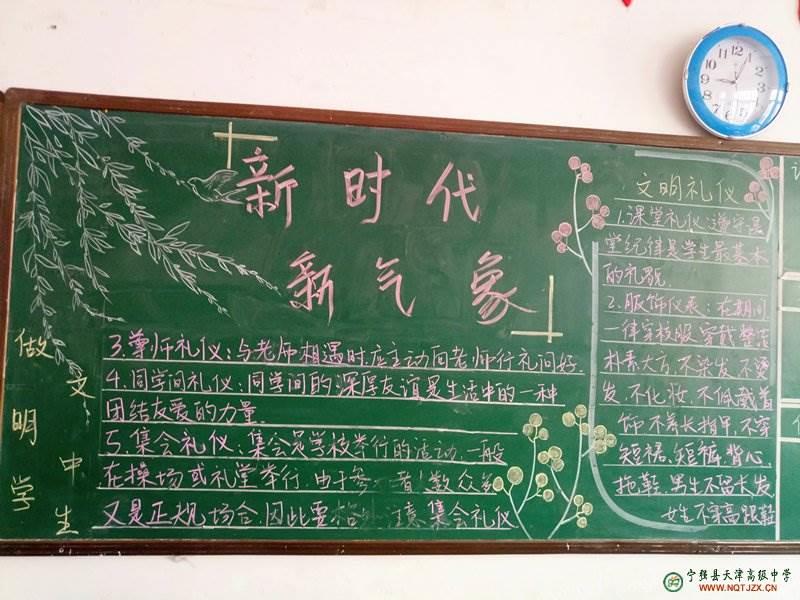 新时代
新气象
做文明中学生
文明礼仪
1.课堂礼仪:遵守县
堂纪律是学生最基本
的礼貌.
2.服饰仪表:在期间
一律穿校服,穿戴整洁
朴素大方,不染发,不烫
发,不化妆,不佩戴首
饰,不养长指甲,不穿
短裙,短裤,背心,
拖鞋,男生不留长发,
女生不穿高跟鞋
3.尊师礼仪:与老师相遇时,应主动向老师行礼问好.
4.同学间礼仪:同学间的深厚友谊是生活中的一种
团结友爱的力量.
5.集会礼仪:集会是学校举行的活动,一般
在操场或礼堂举行,由于参者人数众多
又是正规场合,因此要格外注意集会礼仪
宁强县天津高级中学
WWW.NQTJZX.CN
12
1
2
3
4
5
6
7
8
9
10
11